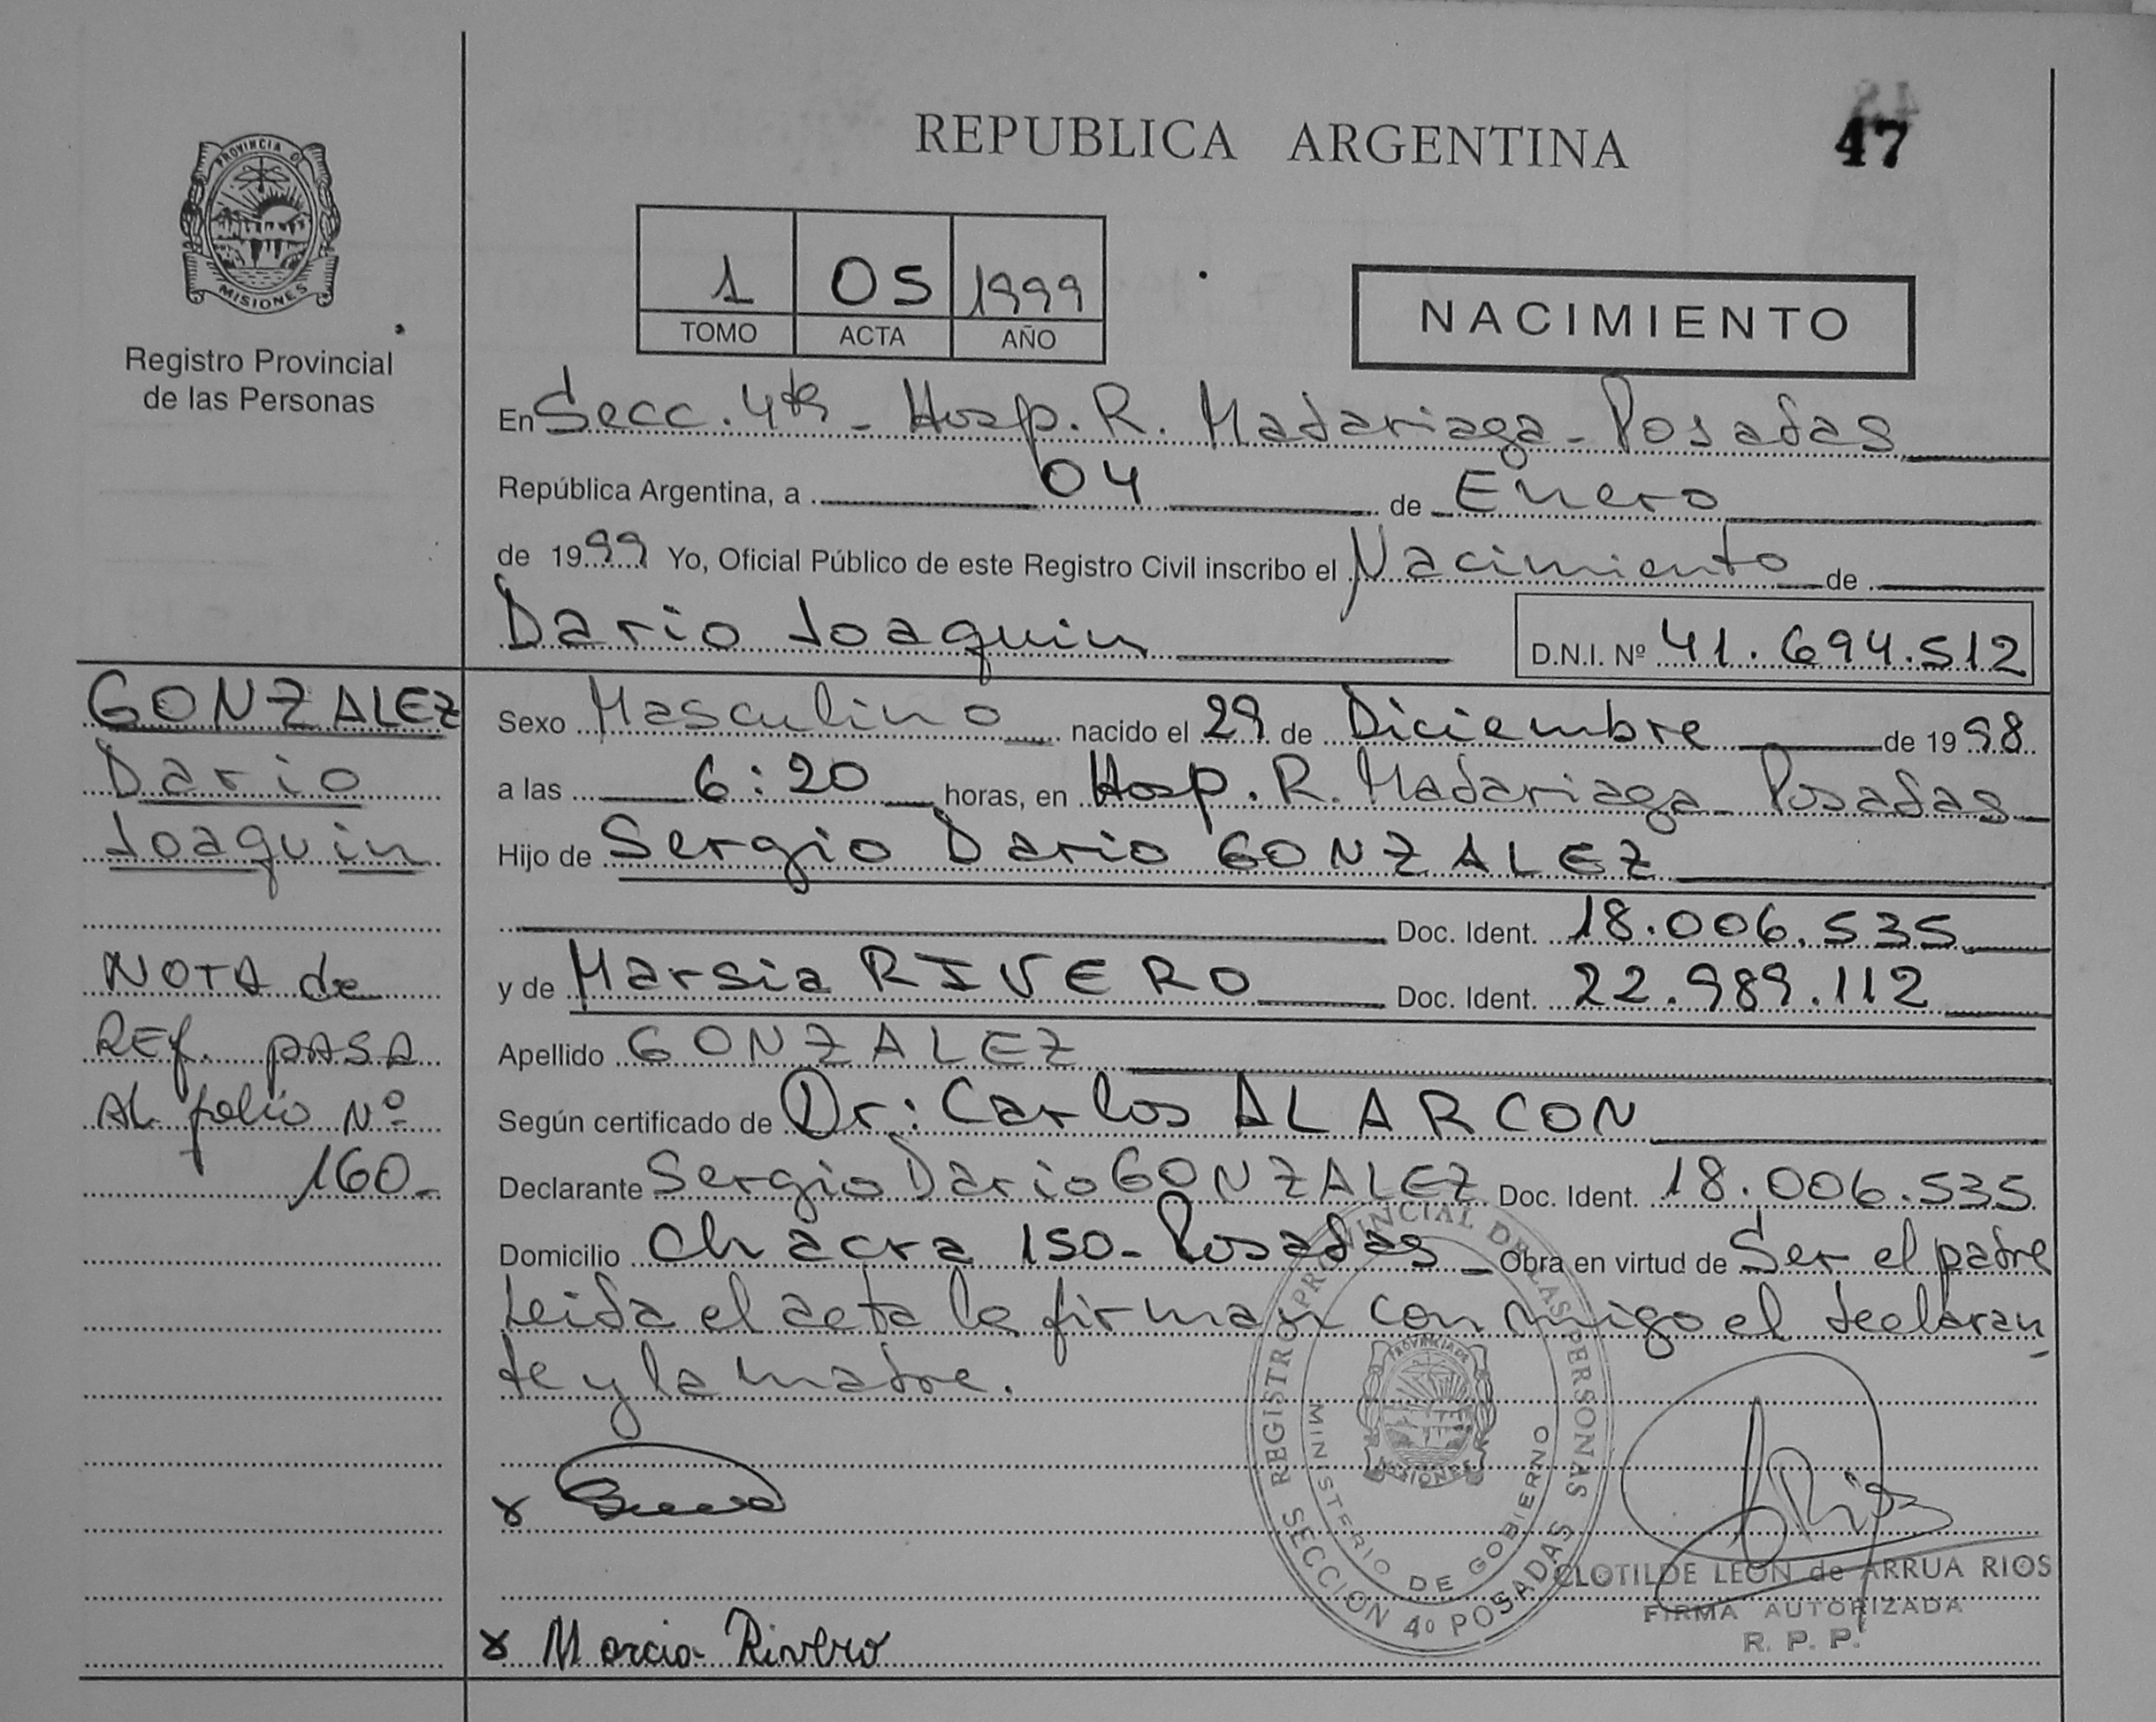 PROVINCIA DE
MISIONES
Registro Provincial
de las Personas
REPUBLICA ARGENTINA
47
1 05 1999
TOMO ACTA AÑO
NACIMIENTO
En Secc. 4ta - Hosp. R. Madariaga - Posadas
República Argentina, a 04 de Enero
de 1999 Yo, Oficial Público de este Registro Civil inscribo el Nacimiento de
Dario Joaquin
D.N.I. Nº 41.694.512
GONZALEZ
Dario
Joaquin
NOTA de
REf. PASA
AL folio Nº
160-
Sexo Masculino nacido el 29 de Diciembre de 1998
a las 6:20 horas, en Hosp. R. Madariaga - Posadas
Hijo de Sergio Dario GONZALEZ
Doc. Ident. 18.006.535
y de Marsia RIVERO Doc. Ident. 22.989.112
Apellido GONZALEZ
Según certificado de Dr: Carlos ALARCON
Declarante Sergio Dario GONZALEZ Doc. Ident. 18.006.535
Domicilio Chacra 150 - Posadas Obra en virtud de Ser el padre
Leida el acta la firman con migo el declaran
te y la madre.
REGISTRO PROVINCIAL DE LAS PERSONAS
MINISTERIO DE GOBIERNO
SECCION 4º POSADAS
PROVINCIA DE
MISIONES
x
Rios
CLOTILDE LEON de ARRUA RIOS
FIRMA AUTORIZADA
R. P. P.
x Marcia Rivero